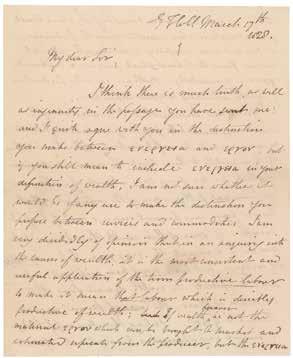 E I Coll March 17th
1828.
My dear Sir,
I think there is much truth, as well
as ingenuity in the passage you have sent me:
and I quite agree with you in the distinction
you make between ενεργεια and εργον. but
if you still mean to include ενεργεια in your
definition of wealth, I am not sure whether it
would be of any use to make the distinction you
propose between services and commodities. I am
very decidedly of opinion that in an enquiry into
the causes of wealth, it is the most convenient and
useful application of the term productive labour
to make it mean that labour which is directly
productive of wealth; of wealth, is not the
material εργον which can be brought to market and
estimated separate from the producer, but the ενεργεια